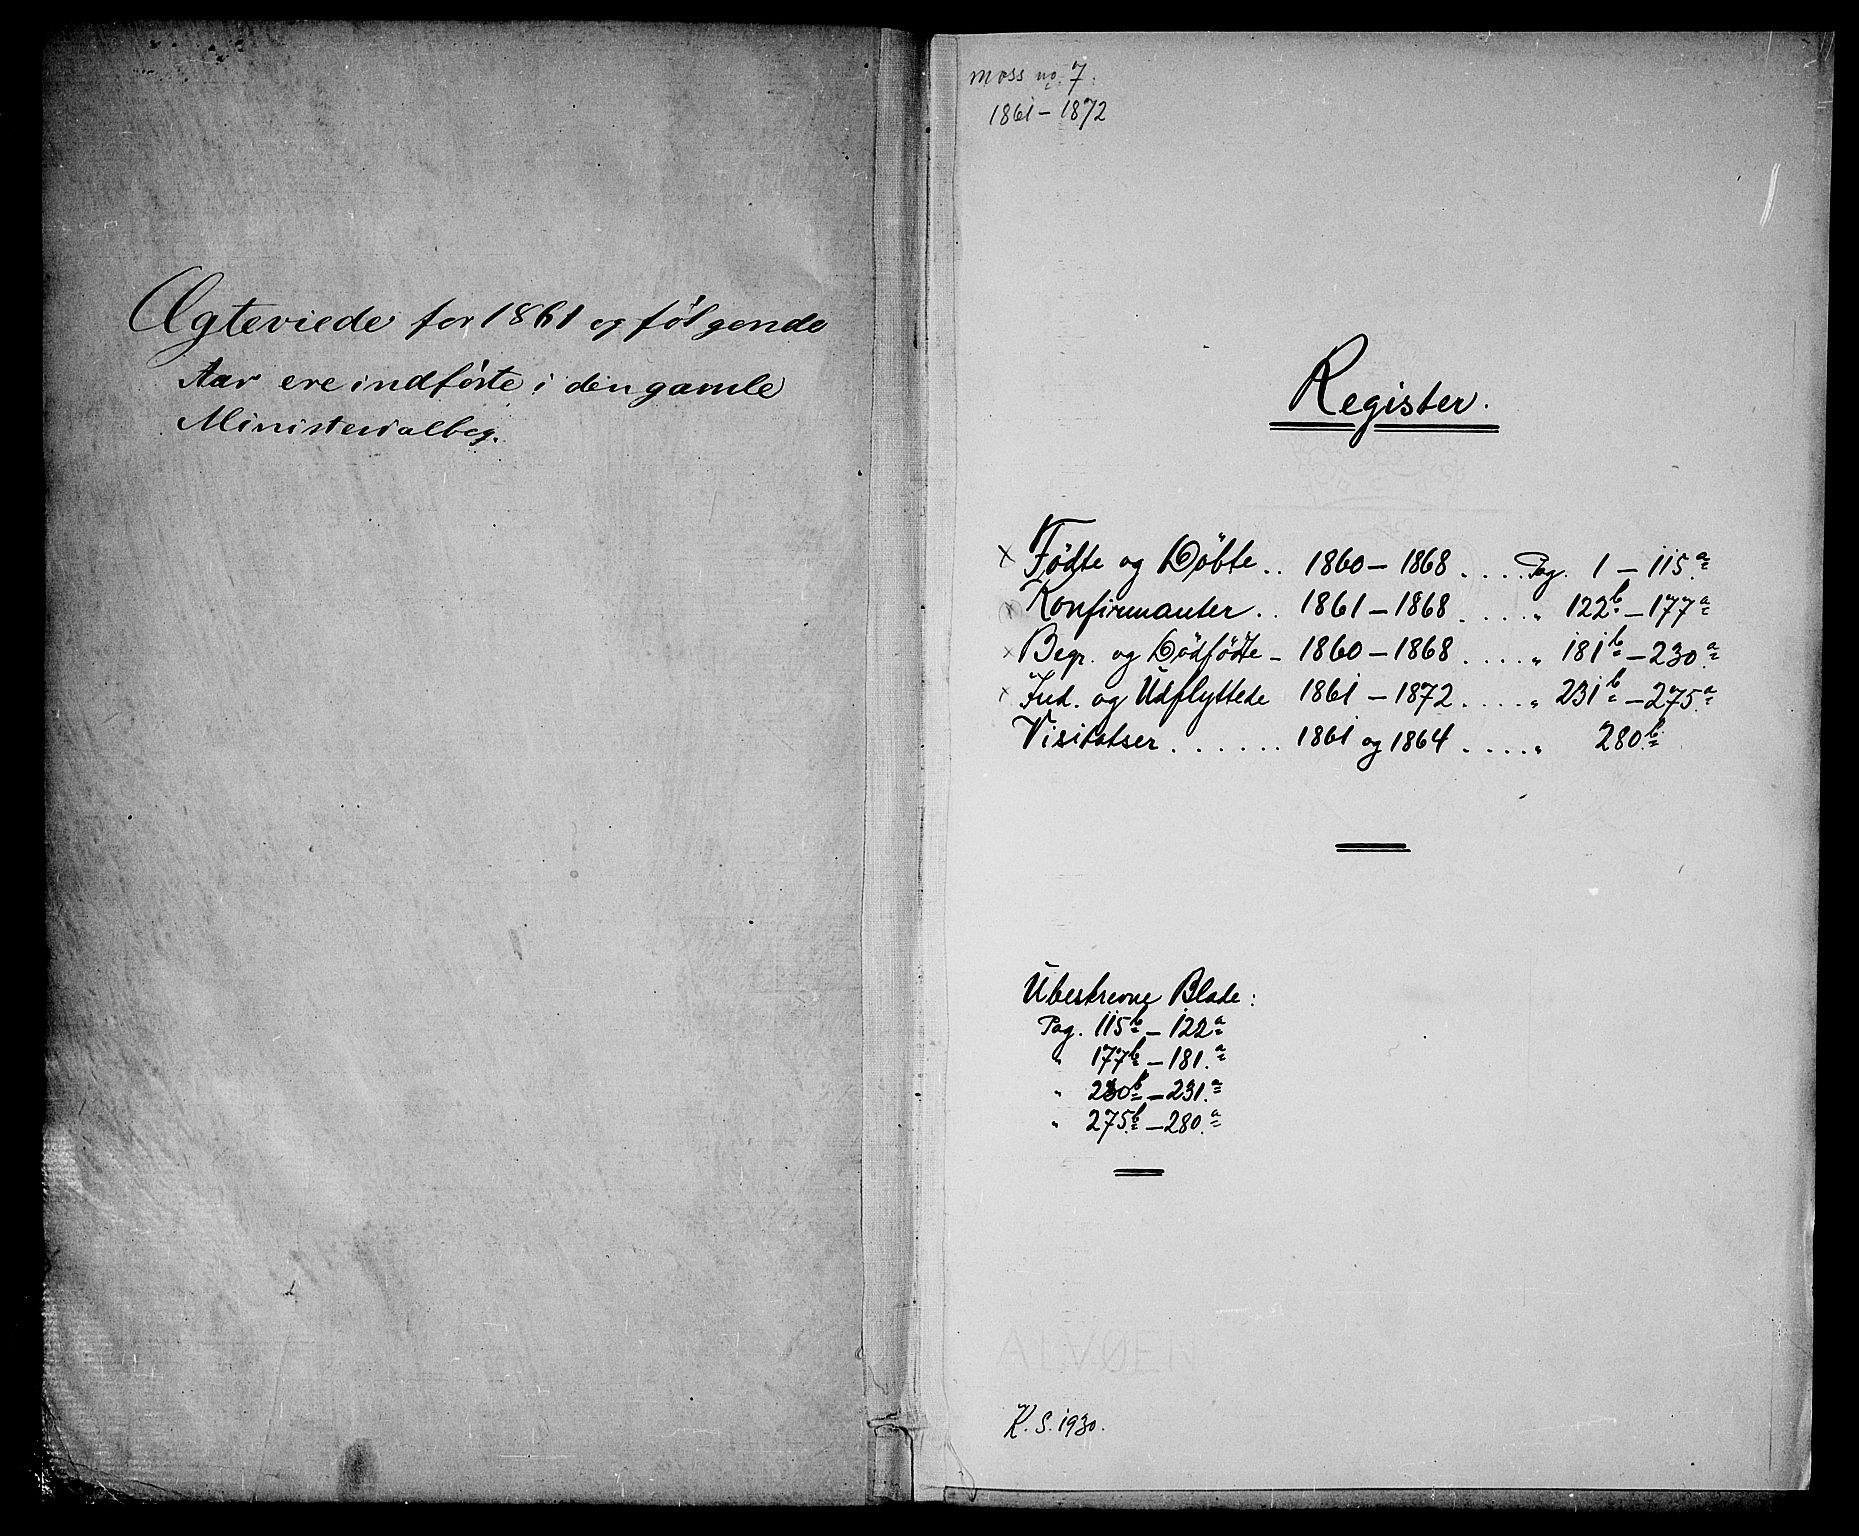 Ægteviede for 1861 og følgende
Aar ere indførte i den gamle
Ministerialbog.
Moss no. 7.
1861 – 1872
Register.
× Fødte og Døbte .. 1860 – 1868 .... Pag. 1 – 115.a
× Konfirmanter .. 1861 – 1868 .... " 122b – 177a
× Begr. og Dødfødte – 1860 – 1868 .... " 181b – 230.a
× Ind. og Udflyttede 1861 – 1872 .... " 231b – 275.a
Visitatser ....... 1861 og 1864 .... " 280.b
Ubeskrevne Blade:
Pag. 115b – 122a
" 177b – 181.a
" 230b – 231.a
" 275.b – 280.a
ALVØEN
K. S. 1930.